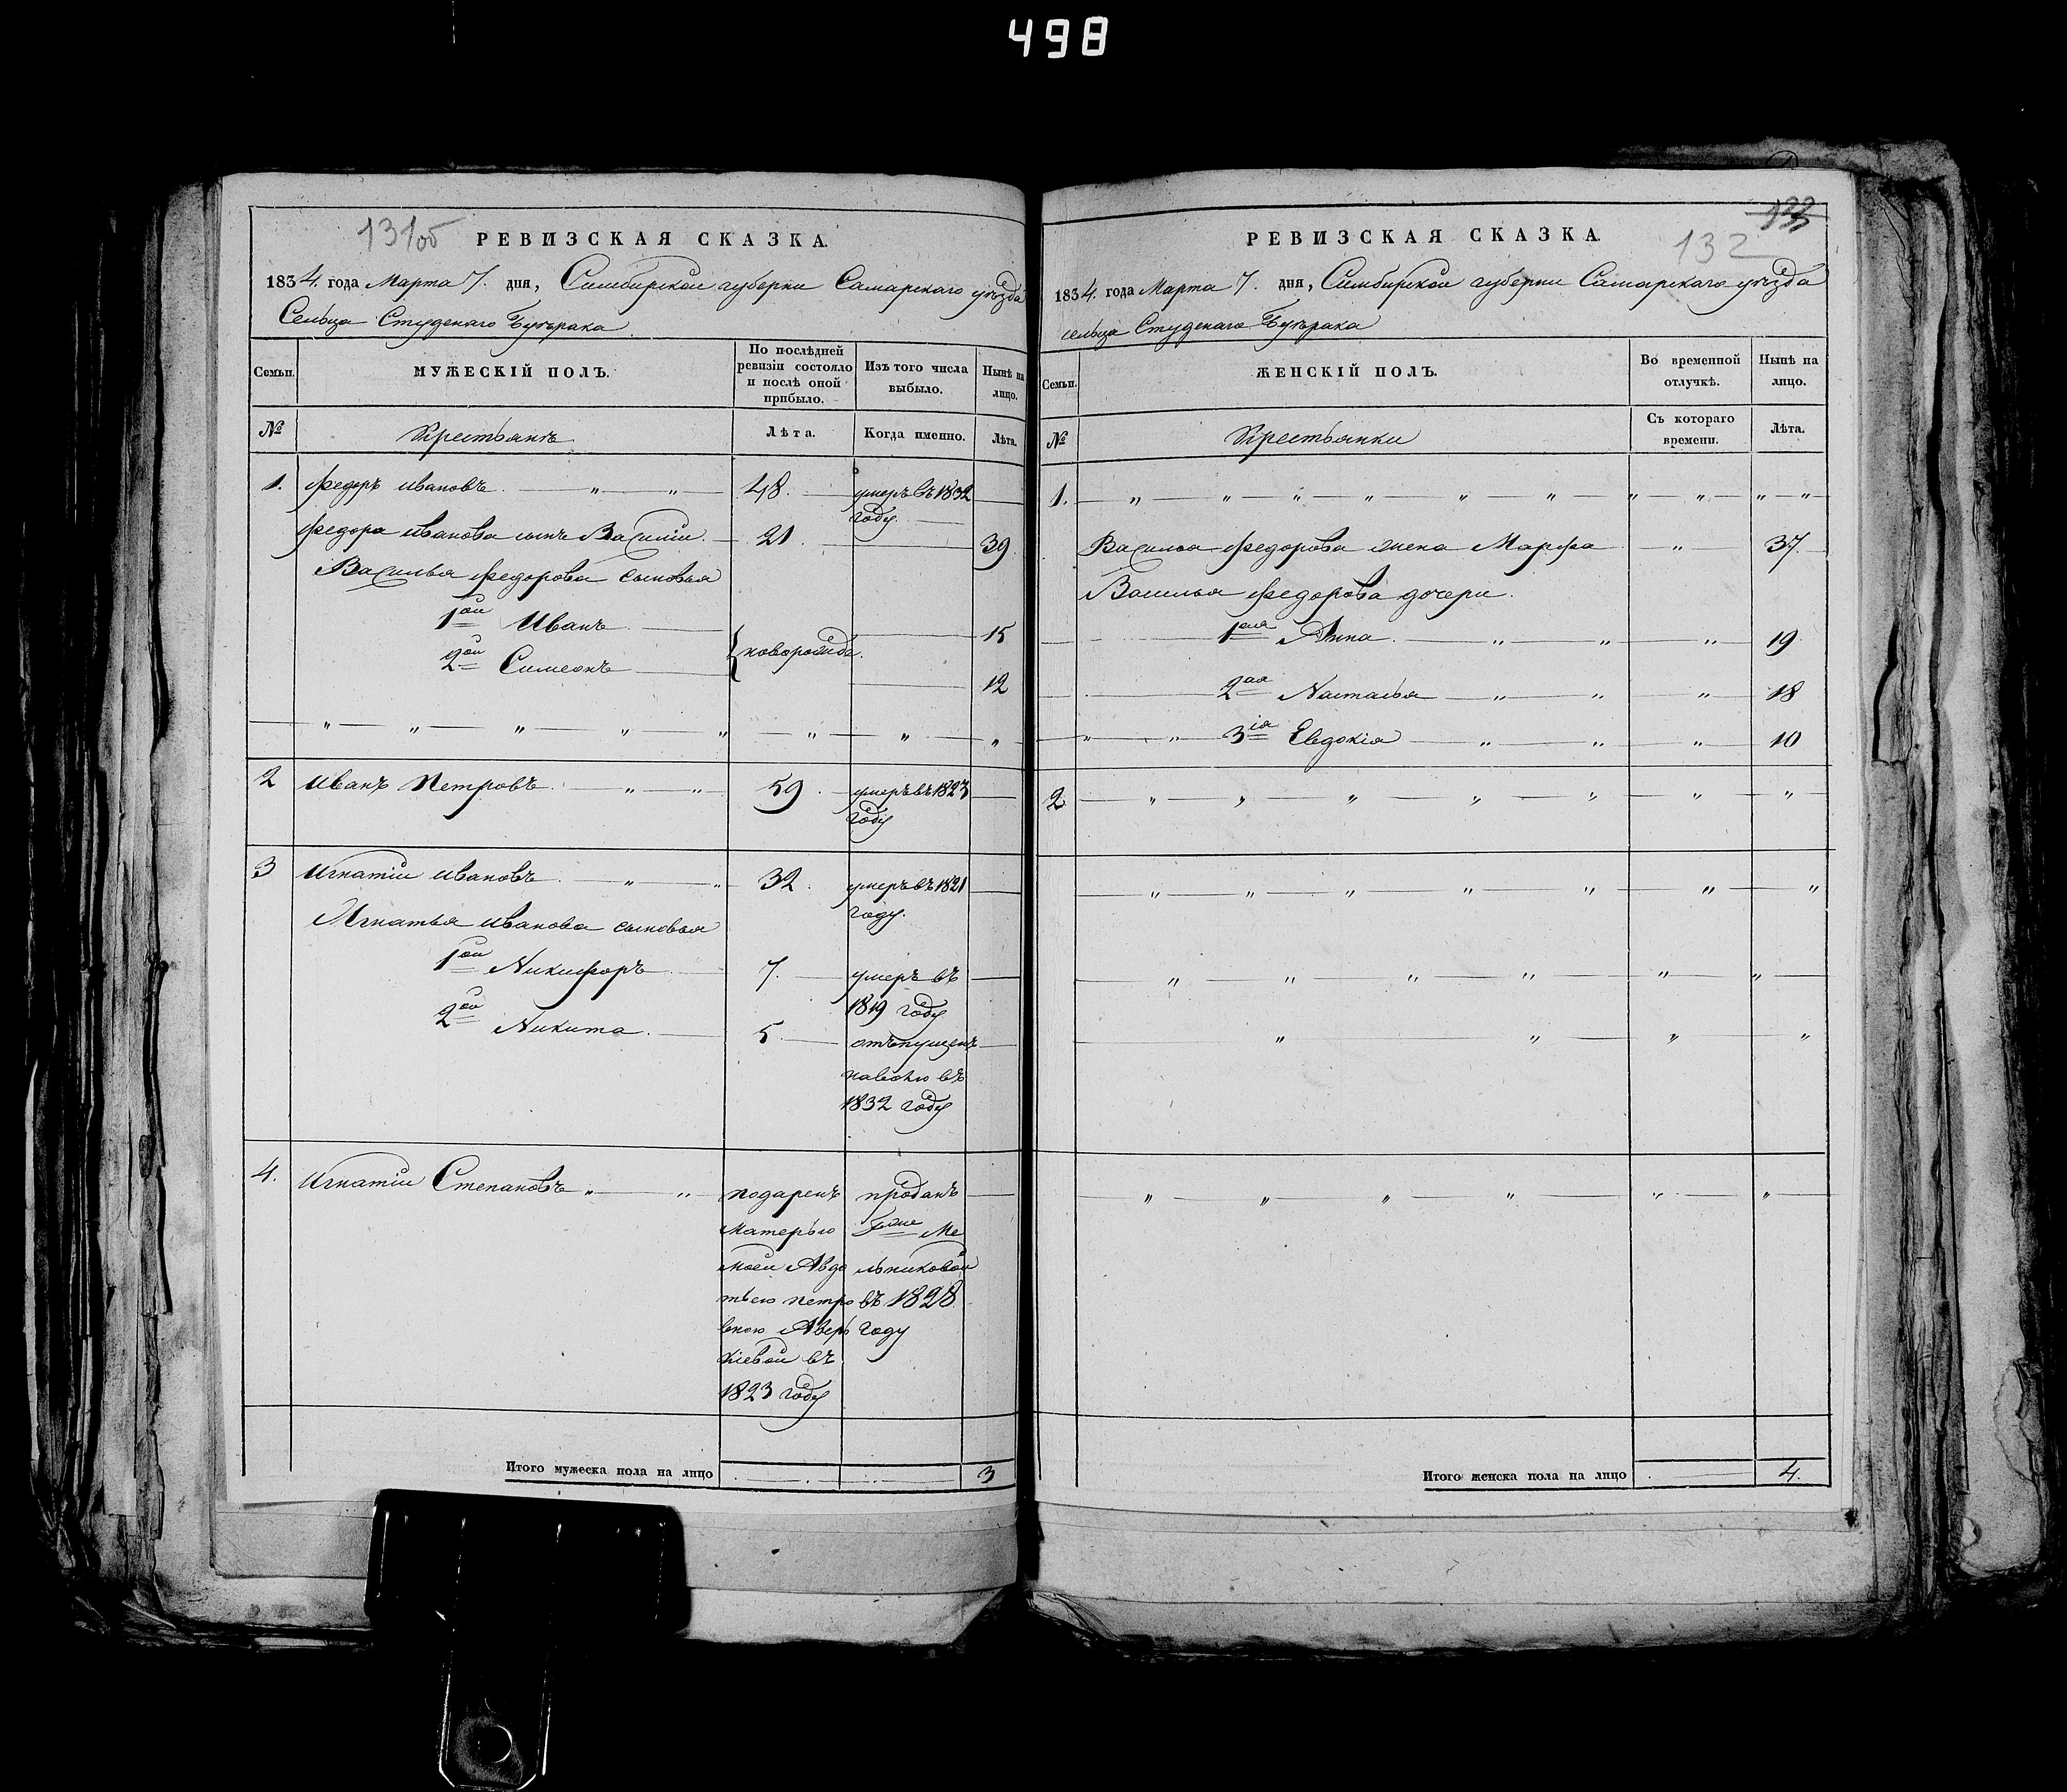 498
131об
РЕВИЗСКАЯ СКАЗКА.
1834. года Марта 7. дня, Симбирской губерни Самарского уѣзда
Сельца Студенаго Буерака
Семьи. МУЖЕСКІЙ ПОЛЪ. По послѣдней ревизіи состояло и послѣ оной прибыло. Изъ того числа выбыло. Нынѣ на лицо.
№ Крестьянъ Лѣта. Когда именно. Лѣта.
1. Федоръ Ивановъ. 48. умеръ въ 1832
году.
Федора Иванова сынъ Василій. 21. 39.
Василья Федорова сыновья
1ой Иванъ 15
новорожд.
2ой Симеонъ 12
2 Иванъ Петровъ. 59. умеръ въ 1823
году
3 Игнатій Ивановъ 32. умеръ въ 1821
году.
Игнатья Иванова сыновья
1ой Никифоръ 7. умеръ въ
1819 году
2ой Никита. 5. отъпущенъ
наволю въ
1832 году
4. Игнатій Степановъ подаренъ проданъ
матерью Гже Ме
моей Авдо льниковой
тьею Петро въ 1828
вною Авер году
кіевой въ
1823 году
Итого мужеска пола на лицо 3
132
РЕВИЗСКАЯ СКАЗКА.
1834. года Марта 7. дня, Симбирской губерни Самарскаго уѣзда
сельца Студенаго Буерака
Семьи. ЖЕНСКІЙ ПОЛЪ. Во временной отлучкѣ. Нынѣ на лицо.
№ Крестьянки Съ котораго времени. Лѣта.
1.
Василья Федорова жена Марфа " 37.
Василья Федорова дочери.
1ая Анна. " " " 19
2ая Насталья " " " 18
" " 3ія Евдокія " " " 10
2
Итого женска пола на лицо 4.